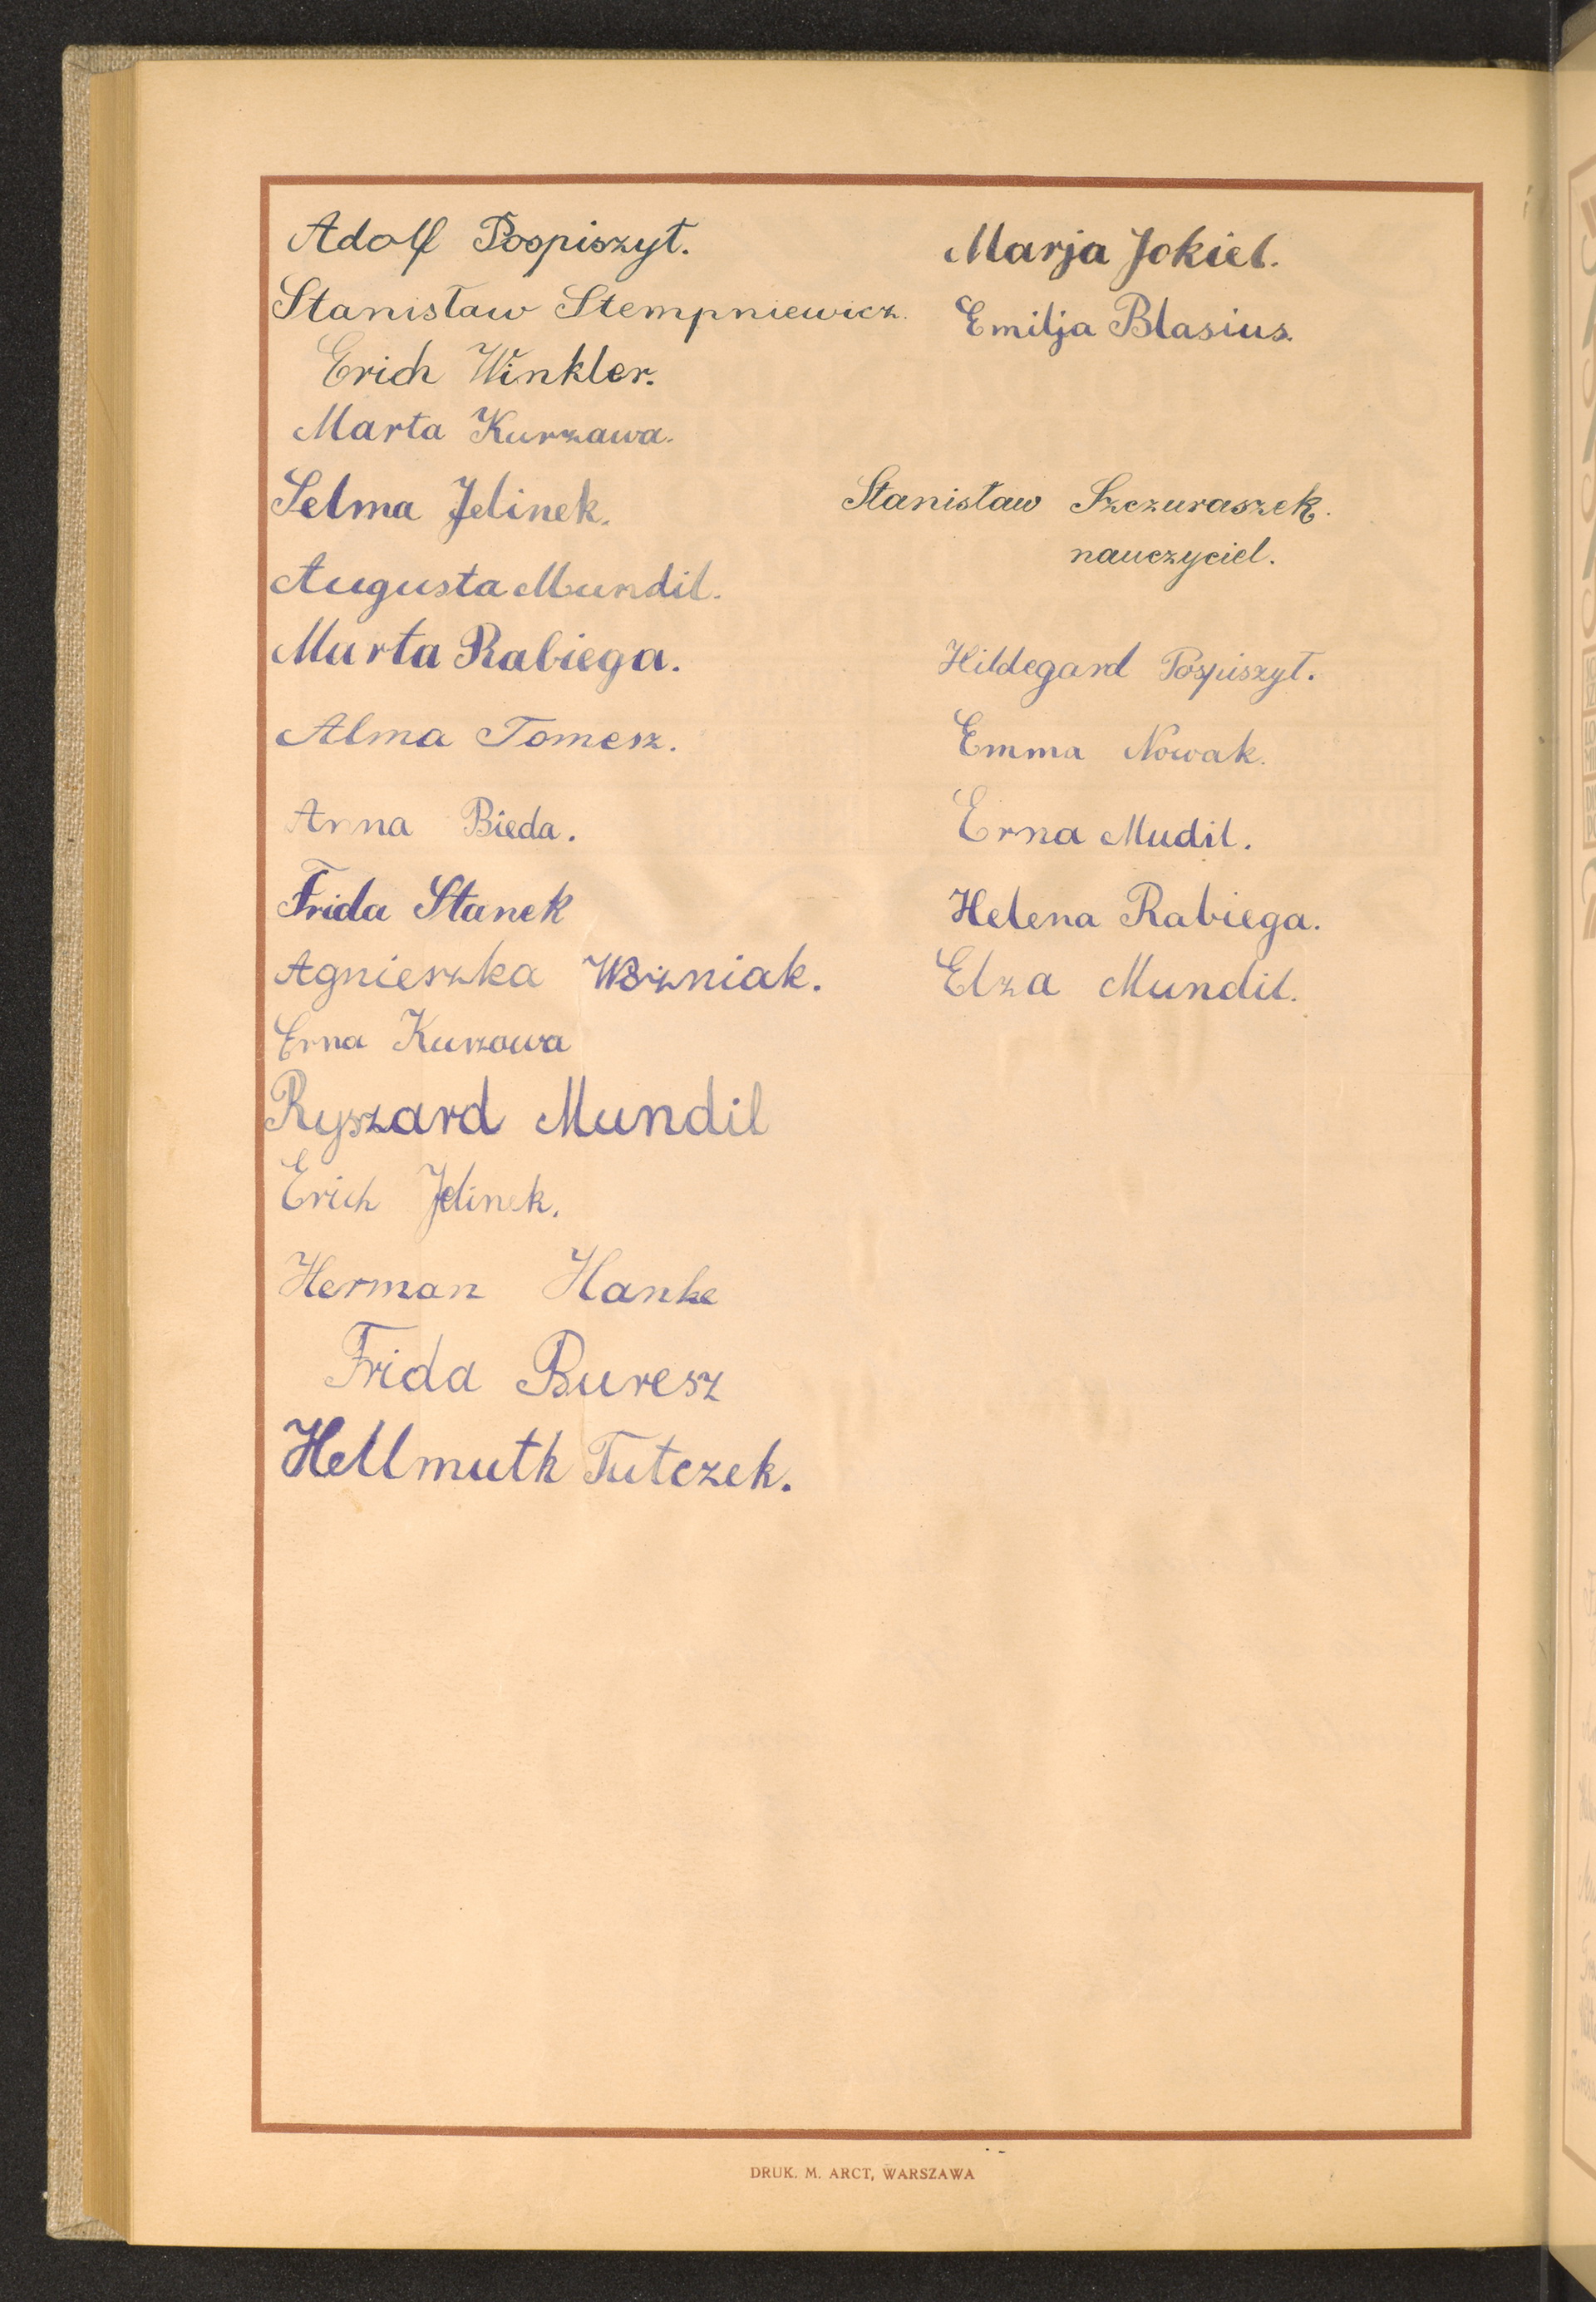 Adolf Pospiszył.
Stanisław Stempniewicz.
Erich Winkler.
Marta Kurzawa.
Selma Jelinek.
Augusta Mundil.
Murta Rabiega.
Alma Tomesz.
Anna Bieda.
Frida Stanek
Agnieszka Wozniak.
Erna Kurzawa
Ryszard Mundil
Erich Jelinek.
Herman Hanke
Frida Buresz
Hellmuth Tutczek.
Marja Jokiel.
Emilja Blasius.
Stanisław Szczuraszek.
nauczyciel.
Hildegard Pospiszył.
Emma Nowak.
Erna Mudil.
Helena Rabiega.
Elza Mundil.
DRUK. M. ARCT, WARSZAWA